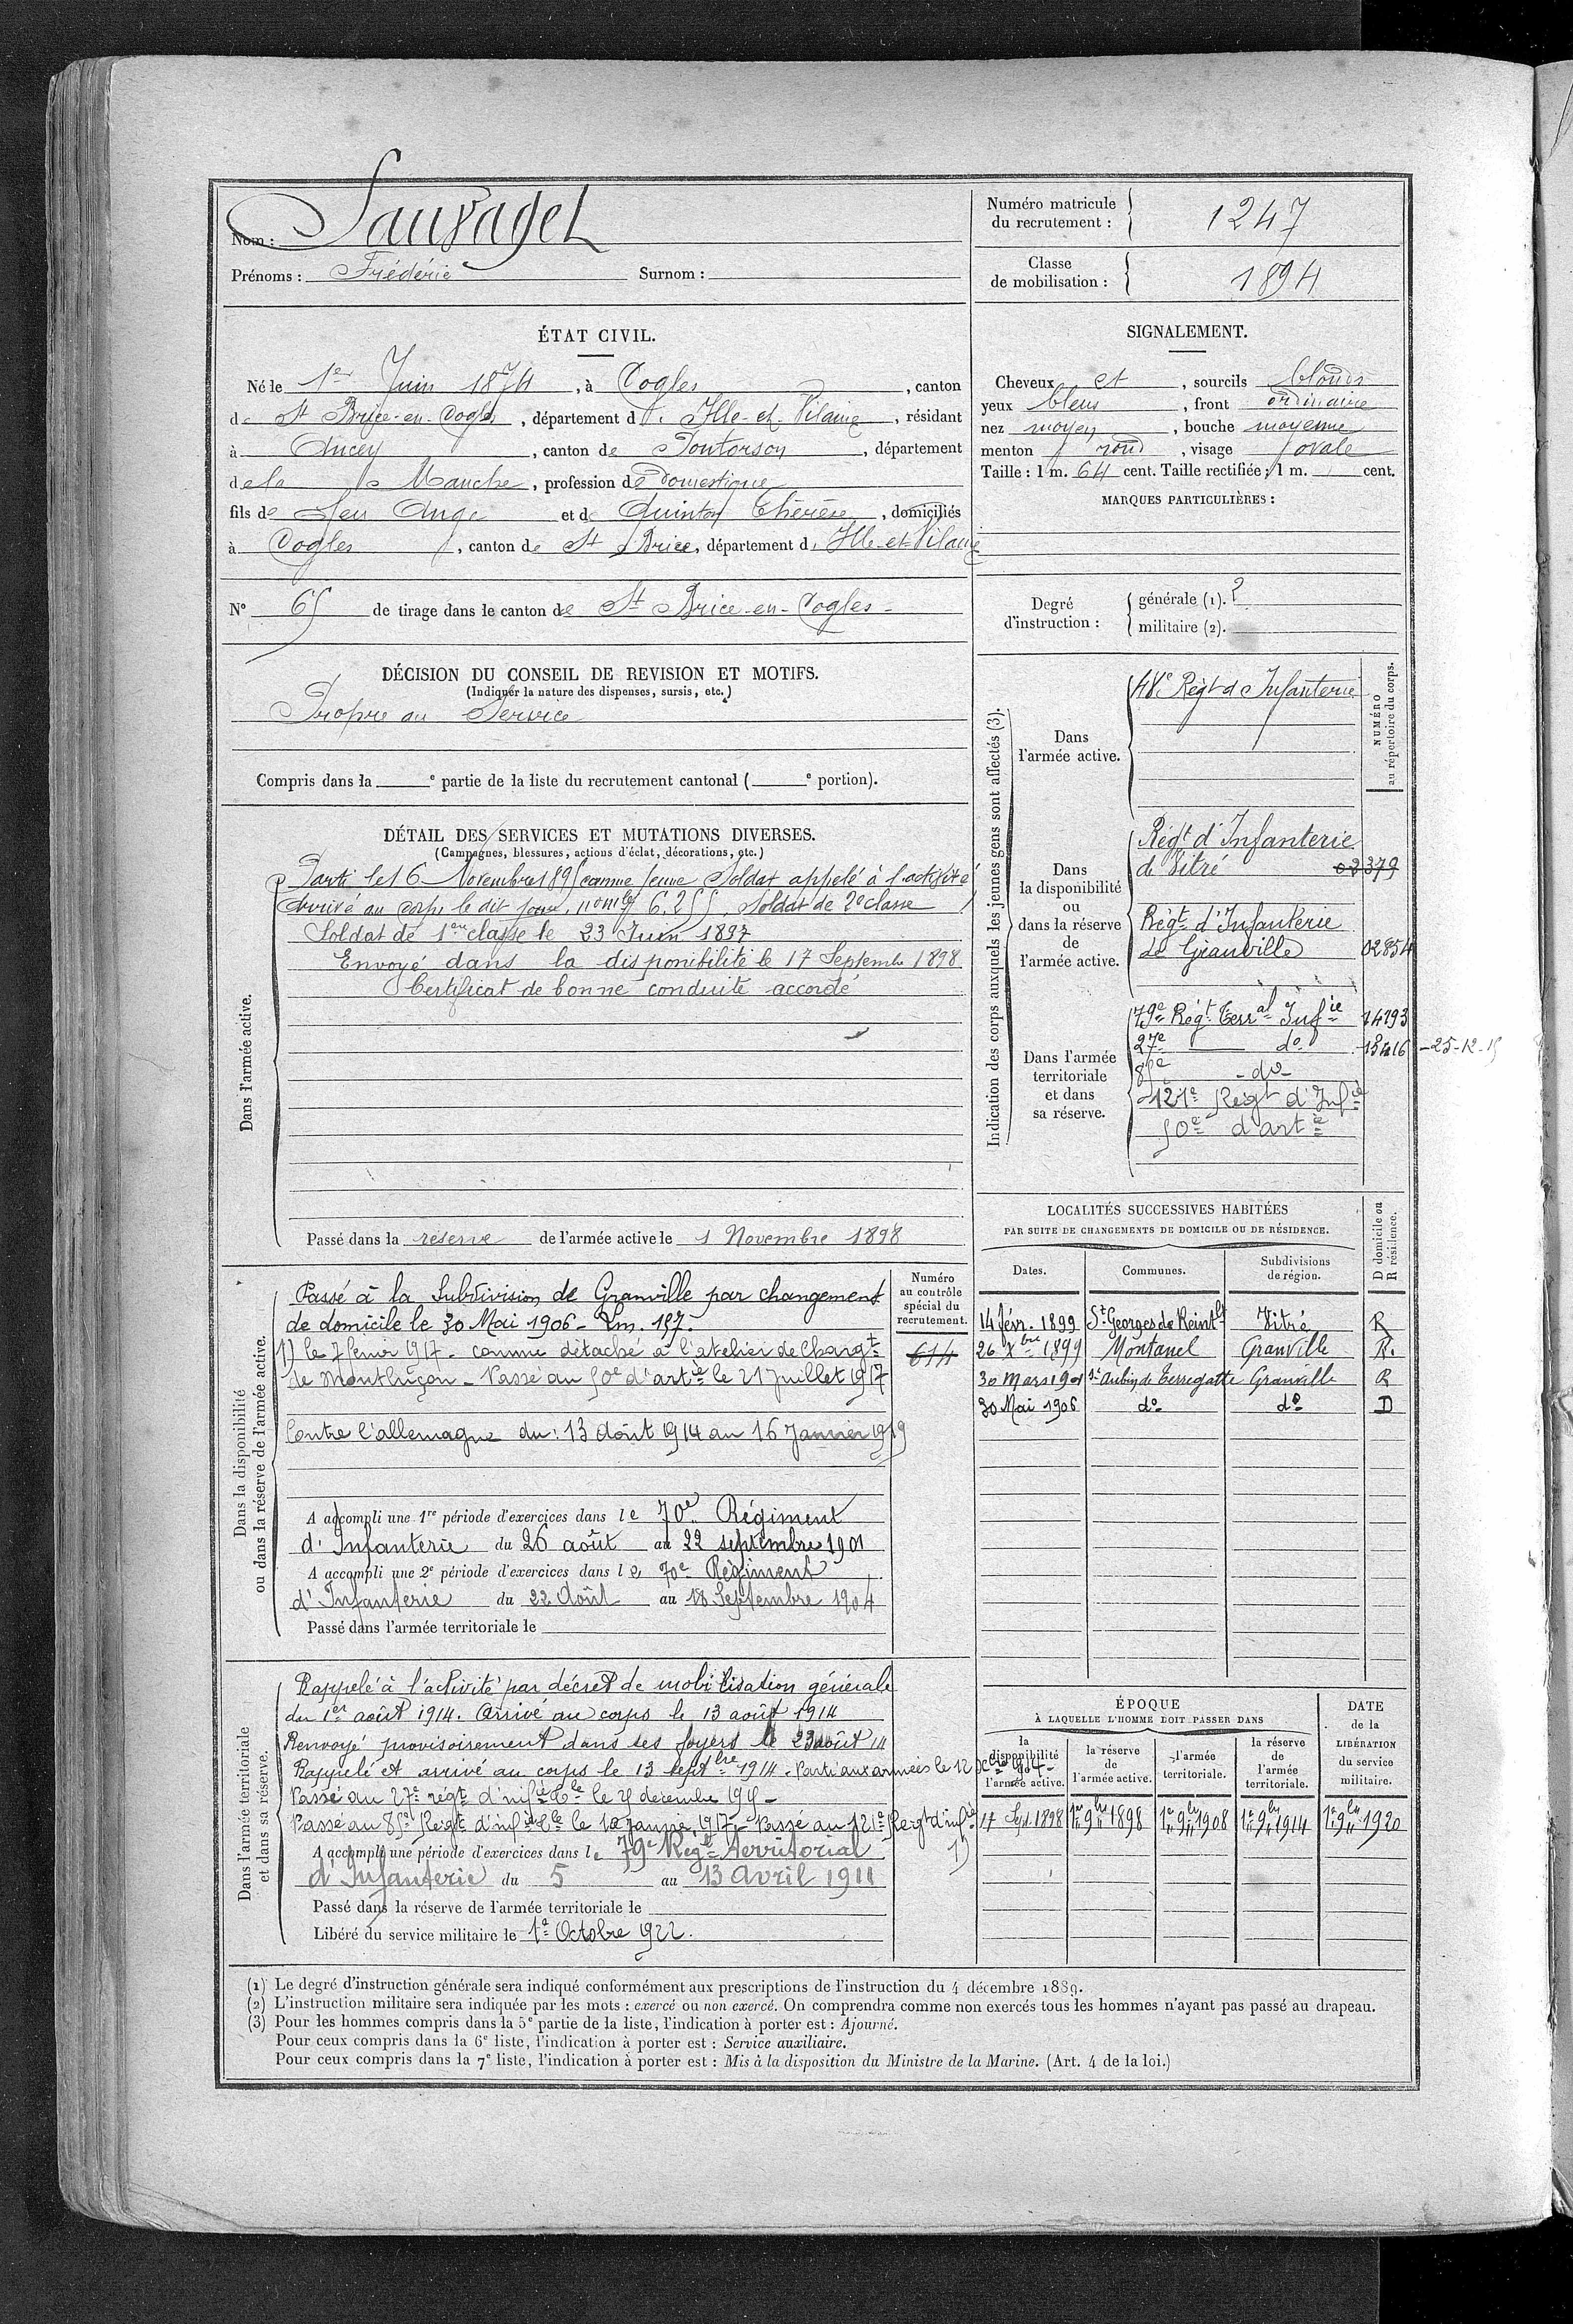 Nom : Sauvaget
Prénoms : Frédéric Surnom :
Numéro matricule du recrutement : 1247
Classe de mobilisation : 1894
ÉTAT CIVIL.
Né le 1er Juin 1874, à Cogles, canton
de St Brice-en-Cogles, département d'Ille-et-Vilaine, résidant
à Aucey, canton de Pontorson, département
de la Manche, profession de Domestique
fils de feu Ange et de Quinton Thérèse, domiciliés
à Cogles, canton de St Brice, département d'Ille-et-Vilaine
N° 65 de tirage dans le canton de St Brice-en-Cogles
SIGNALEMENT.
Cheveux et, sourcils blonds
yeux bleus, front ordinaire
nez moyen, bouche moyenne
menton rond, visage ovale
Taille : 1 m. 64 cent. Taille rectifiée : 1 m. cent.
MARQUES PARTICULIÈRES :
Degré d'instruction : générale (1). 2
militaire (2).
DÉCISION DU CONSEIL DE REVISION ET MOTIFS.
(Indiquer la nature des dispenses, sursis, etc.)
Propre au Service
Compris dans la e partie de la liste du recrutement cantonal ( e portion).
DÉTAIL DES SERVICES ET MUTATIONS DIVERSES.
(Campagnes, blessures, actions d'éclat, décorations, etc.)
Dans l'armée active.
Parti le 16 Novembre 1895 comme jeune Soldat appelé à l'activité
Arrivé au corps le dit jour, no mle 6.255, Soldat de 2e classe
Soldat de 1ere classe le 23 Juin 1897
Envoyé dans la disponibilité le 17 Septembre 1898
Certificat de bonne conduite accordé
Passé dans la réserve de l'armée active le 1 Novembre 1898
Indication des corps auxquels les jeunes gens sont affectés (3).
NUMÉRO au répertoire du corps.
Dans l'armée active.
48e Régt d'Infanterie
Dans la disponibilité ou dans la réserve de l'armée active.
Régt d'Infanterie
de Vitré 03379
Régt d'Infanterie
de Granville 02854
Dans l'armée territoriale et dans sa réserve.
79e Régt Terral Infie 14193
27e do 15416 - 25-12-15
85e - do -
121e Régt d'Infie
50e d'artie
Dans la disponibilité ou dans la réserve de l'armée active.
Numéro au contrôle spécial du recrutement.
614
Passé à la Subdivision de Granville par changement
de domicile le 30 Mai 1906 - Em. 187.
1) le 7 février 1917 - comme détaché à l'atelier de Chargt
de Montluçon - Passé au 50e d'artie le 21 Juillet 1917
Contre l'allemagne du : 13 août 1914 au 16 Janvier 1919
A accompli une 1re période d'exercices dans le 70e Régiment
d'Infanterie du 26 août au 22 septembre 1901
A accompli une 2e période d'exercices dans le 70e Régiment
d'Infanterie du 22 Août au 18 Septembre 1904
Passé dans l'armée territoriale le
LOCALITÉS SUCCESSIVES HABITÉES
PAR SUITE DE CHANGEMENTS DE DOMICILE OU DE RÉSIDENCE.
Dates. Communes. Subdivisions de région. D domicile ou R résidence.
14 févr. 1899 St Georges de Reintt Vitré R
26 Xbre 1899 Montanel Granville R.
30 Mars 1901 St Aubin de Terregatte Granville R
30 Mai 1906 do do D
Dans l'armée territoriale et dans sa réserve.
Rappelé à l'activité par décret de mobilisation générale
du 1er août 1914. Arrivé au corps le 13 août 1914
Renvoyé provisoirement dans ses foyers le 23 août 14
Rappelé et arrivé au corps le 13 septbre 1914. Parti aux armées le 12 Xbre 1914 -
Passé au 27e régt d'infie tle le 25 decembre 1915 -
Passé au 85e Régt d'infie tle le 1er Janvier 1917 - Passé au 121e Régt d'infie 1)
A accompli une période d'exercices dans le 79e Régt territorial
d'Infanterie du 5 au 13 Avril 1911
Passé dans la réserve de l'armée territoriale le
Libéré du service militaire le 1er Octobre 1922.
ÉPOQUE
À LAQUELLE L'HOMME DOIT PASSER DANS
la disponibilité de l'armée active. la réserve de l'armée active. l'armée territoriale. la réserve de l'armée territoriale. DATE de la LIBÉRATION du service militaire.
17 Sept 1898 1er 9bre 1898 1er 9bre 1908 1er 9bre 1914 1er 9bre 1920
(1) Le degré d'instruction générale sera indiqué conformément aux prescriptions de l'instruction du 4 décembre 1889.
(2) L'instruction militaire sera indiquée par les mots : exercé ou non exercé. On comprendra comme non exercés tous les hommes n'ayant pas passé au drapeau.
(3) Pour les hommes compris dans la 5e partie de la liste, l'indication à porter est : Ajourné.
Pour ceux compris dans la 6e liste, l'indication à porter est : Service auxiliaire.
Pour ceux compris dans la 7e liste, l'indication à porter est : Mis à la disposition du Ministre de la Marine. (Art. 4 de la loi.)